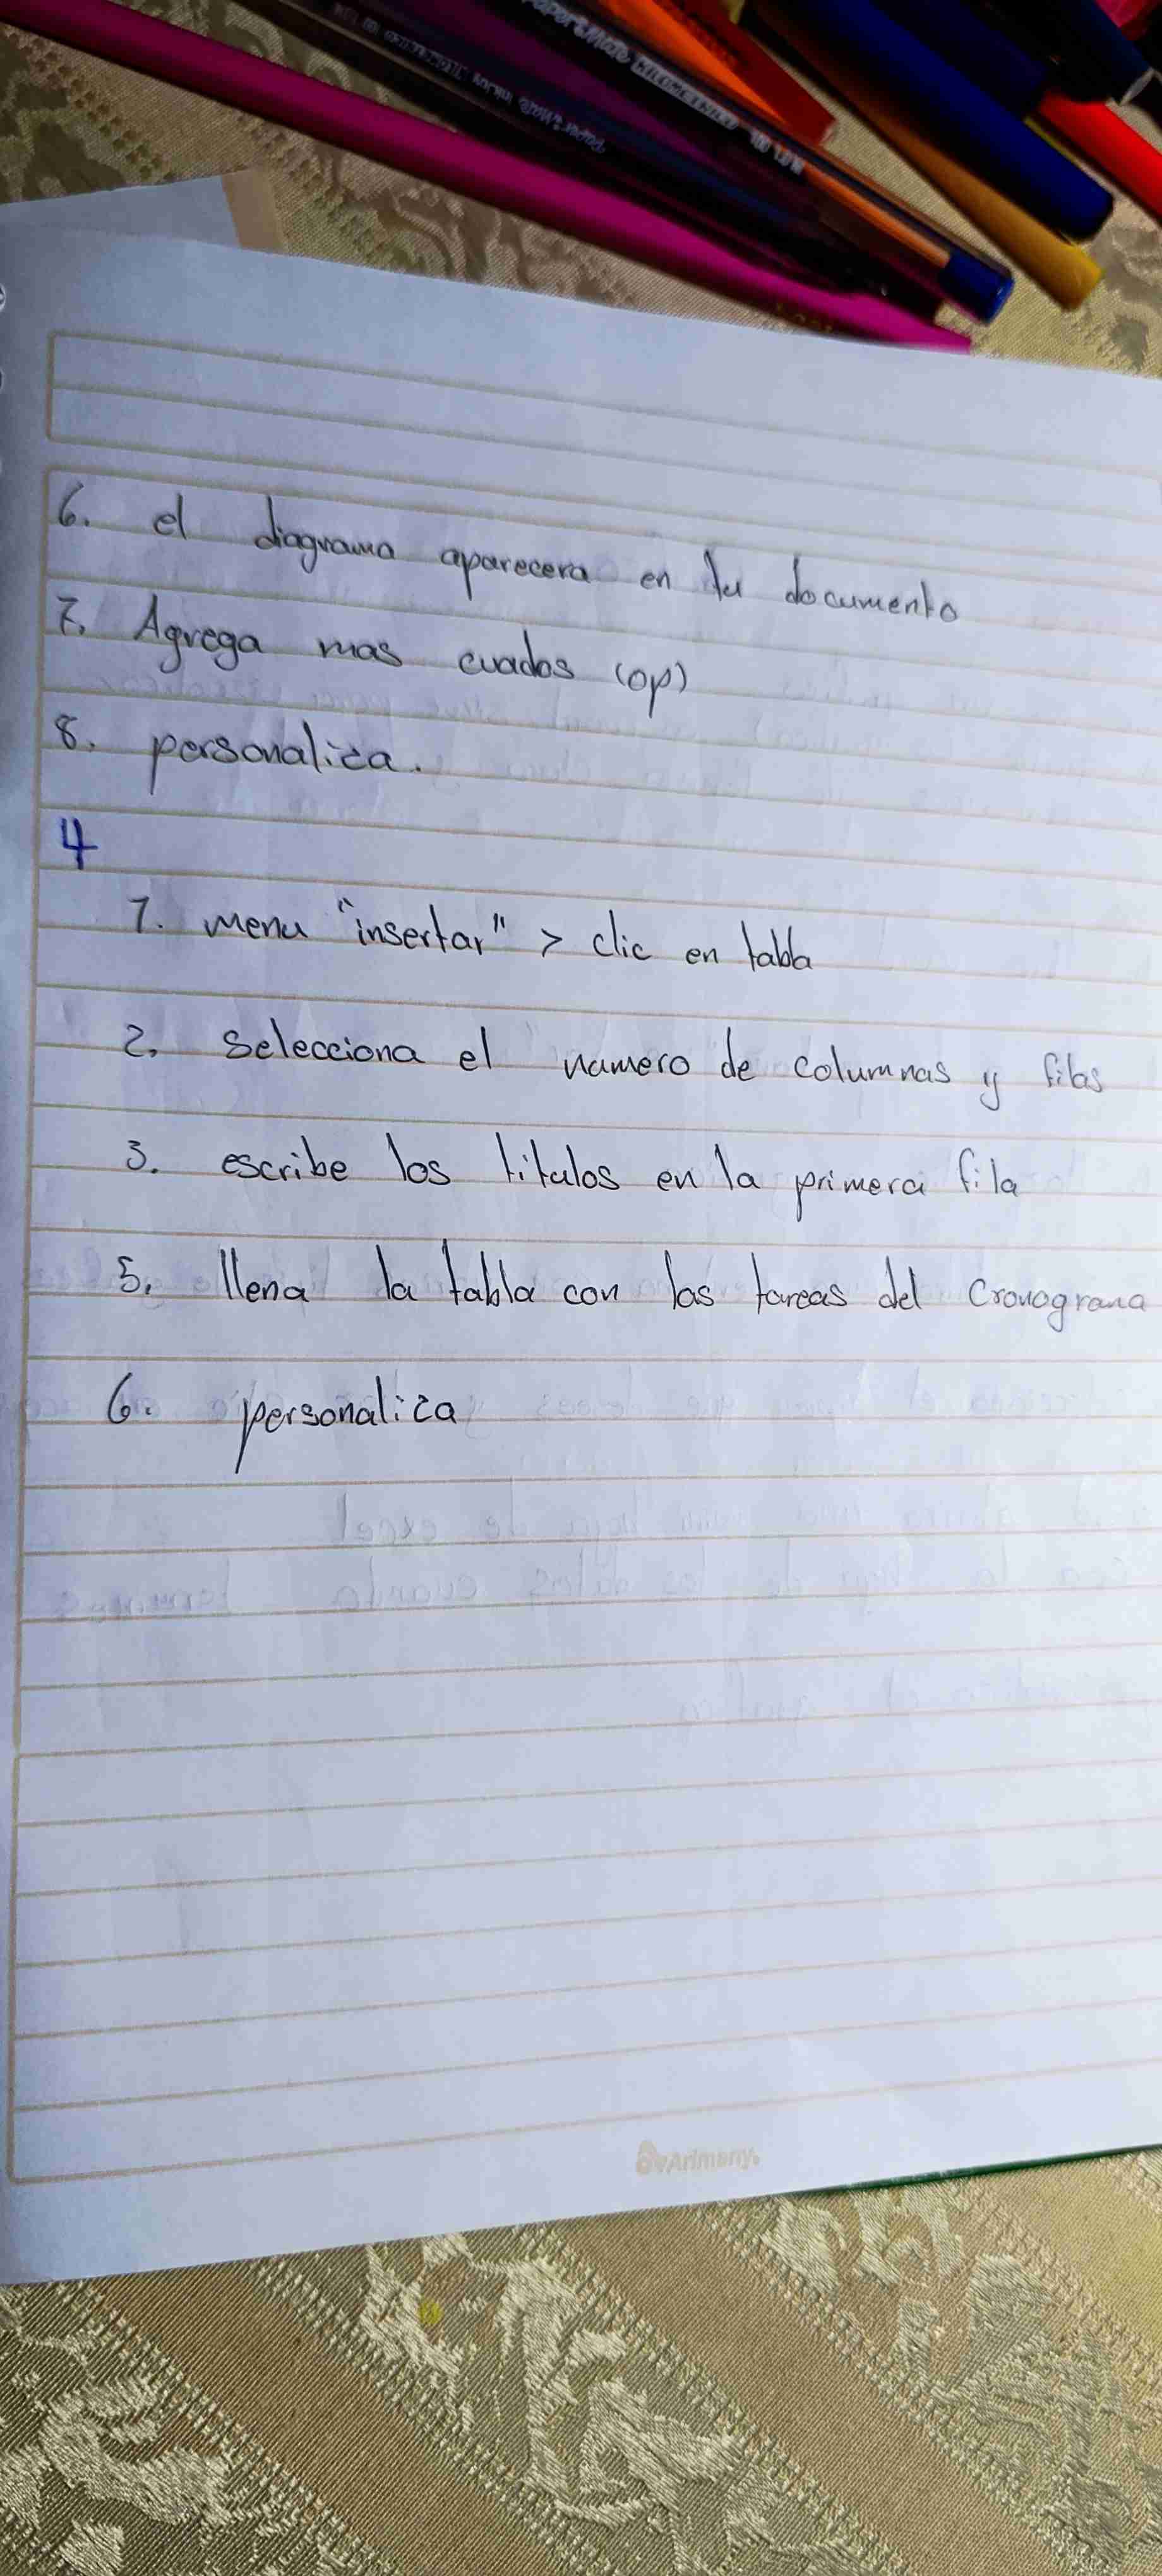 Paper Mate KILOMETRICO 100 M 1.0
Paper Mate InkJoy
6. el diagrama aparecera en tu documento
7. Agrega mas cuados (op)
8. personaliza.
4
1. menu "insertar" > clic en tabla
2. selecciona el numero de columnas y filas
3. escribe los titulos en la primera fila
5. llena la tabla con las tareas del Cronograma
6. personaliza
Arimany.